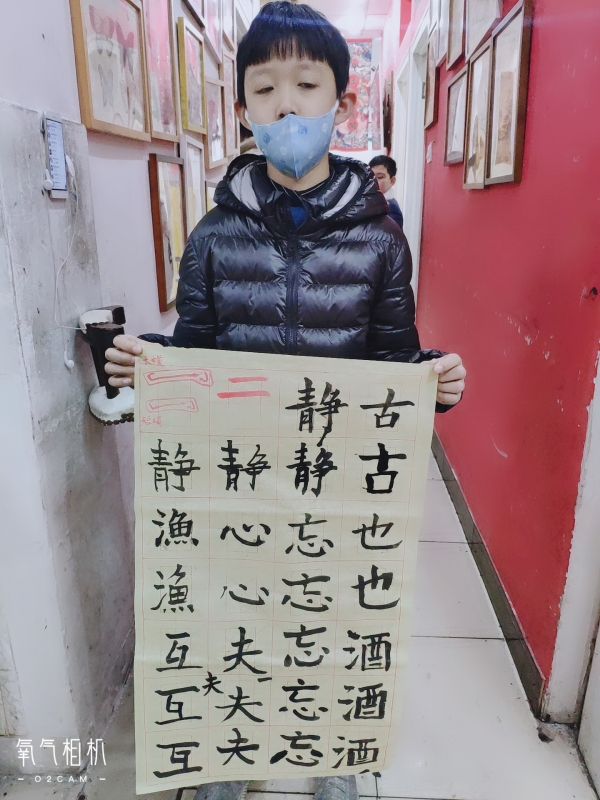 古古也也酒酒酒
静静忘忘忘忘忘
二静心心夫夫夫
夫
静漁漁互互互
氧气相机
O2CAM